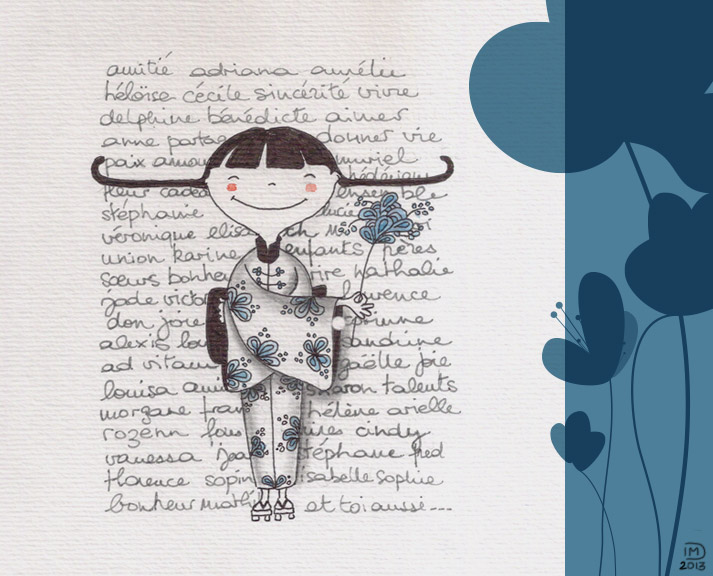 amitié adriana aurélie
héloïse cécile sincérité vivre
delphine bénédicte aimer
anne partage donner vie
paix amour muriel
fleur cadea frédérique
ensemble
stéphanie lucie
véronique elisa
union karine enfants pères
sœurs bonheu rire nathalie
jade victor laurence
don joie corinne
alexis lou sandrine
ad vitam gaëlle joie
louisa ami sharon talents
morgane fran hélène arielle
rozenn lous rires cindy
vanessa jean stéphane fred
florence sopin isabelle Sophie
bonheur mathi et toi aussi ---
IMD
2013